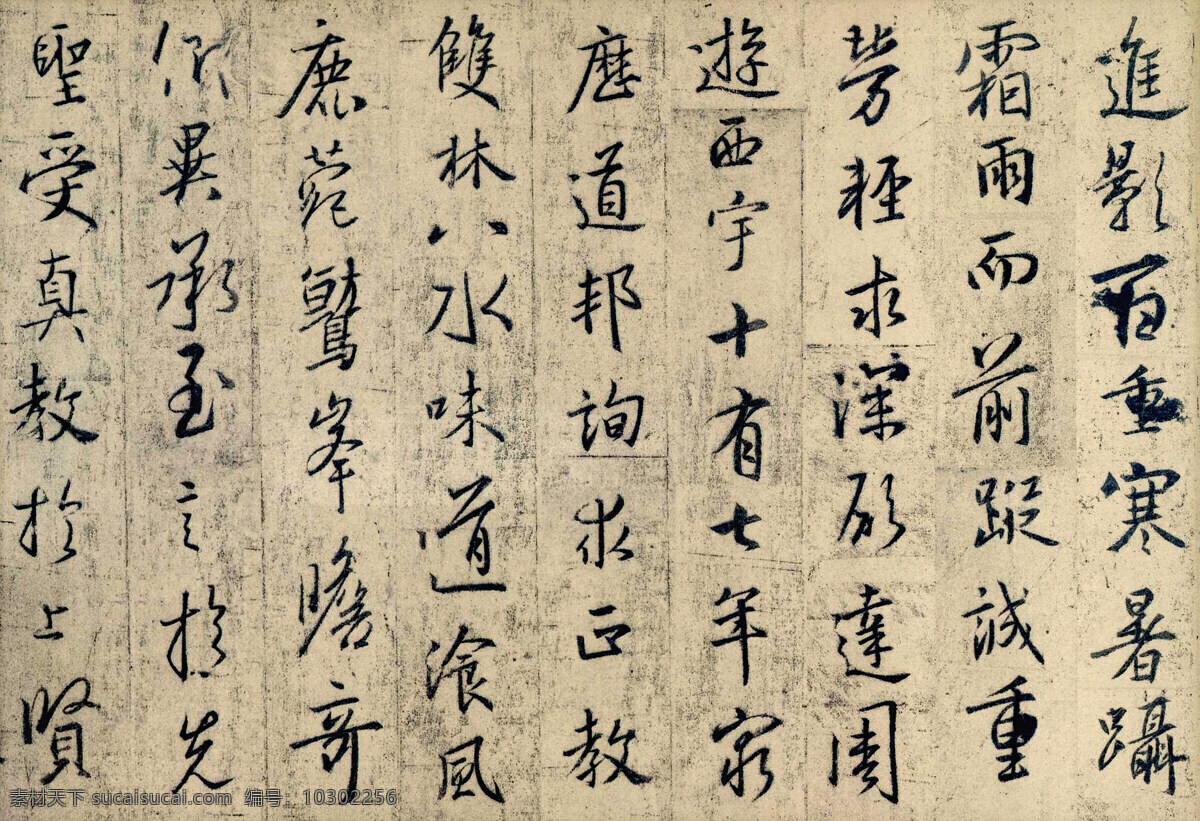 進影百重寒暑躡
霜雨而前蹤誠重
勞輕求深願達周
遊西宇十有七年窮
歷道邦詢求正教
雙林八水味道湌風
鹿菀鷲峯瞻奇
仰異承至言於先
聖受真教於上賢
素材天下 sucaisucai.com 编号：10302256